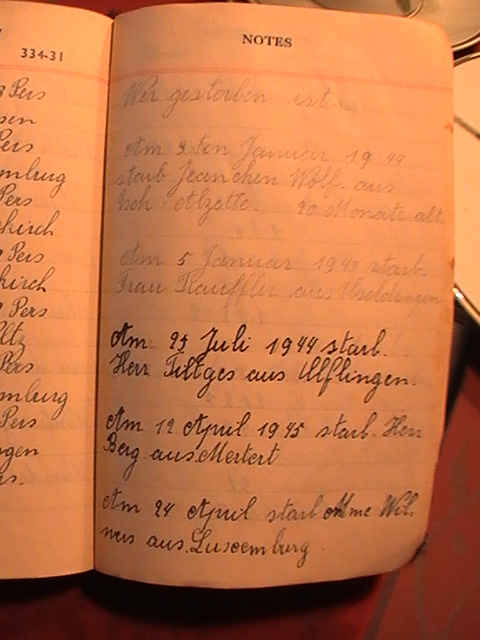 334-31
Pers
sen
Pers
mburg
Pers
kirch
Pers
kirch
Pers
ltz
Pers
mburg
Pers
gen
s.
NOTES
Wer gestorben ist.
Am 3.ten Januar 1944
starb Jeanchen Wolf. aus
Esch. Alzette. 20 Monate alt.
Am 5 Januar 1944 starb.
Frau Kauffler aus Useldingen
Am 25 Juli 1944 starb.
Herr Filtges aus Ulflingen.
Am 12 April 1945 starb. Herr
Berg aus Mertert
Am 24 April starb Mme Wil
mes aus. Luxemburg